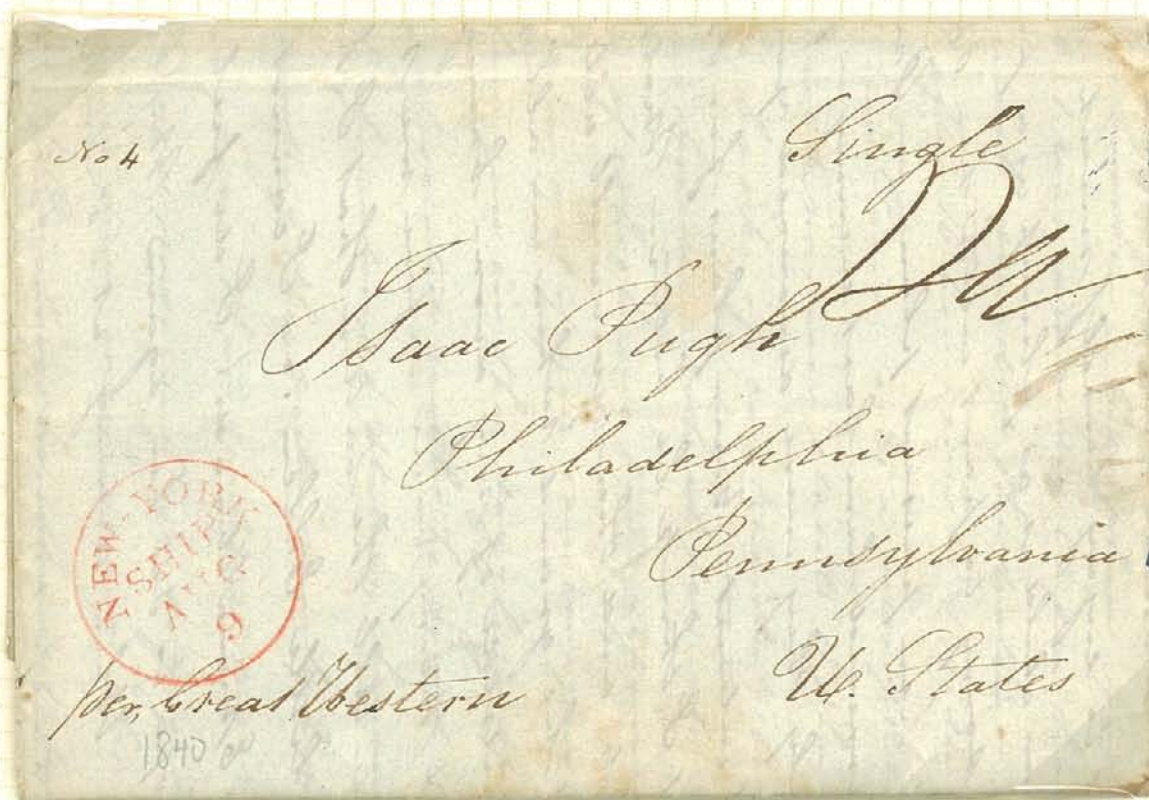 No 4
Single
Isaac Pugh
Philadelphia
Pennsylvania
U. States
NEW-YORK
SHIP
AUG
9
per, Great Western
1840